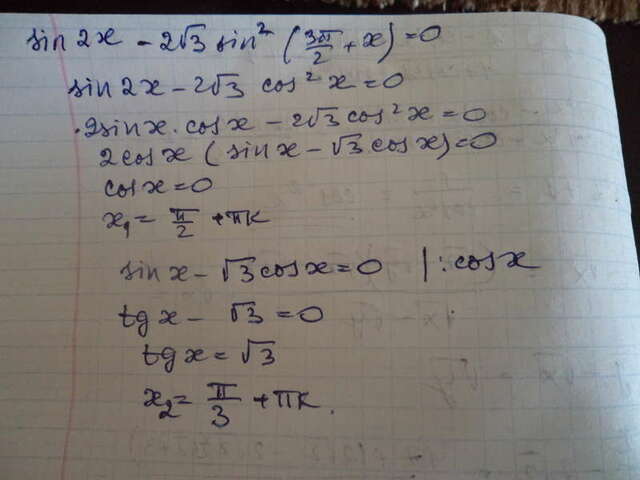 sin 2x − 2√3 sin² (3π/2 + x) = 0
sin 2x − 2√3 cos² x = 0
2sin x · cos x − 2√3 cos² x = 0
2cos x ( sin x − √3 cos x) = 0
cos x = 0
x₁ = π/2 + πk
sin x − √3 cos x = 0 | : cos x
tg x − √3 = 0
tg x = √3
x₂ = π/3 + πk.